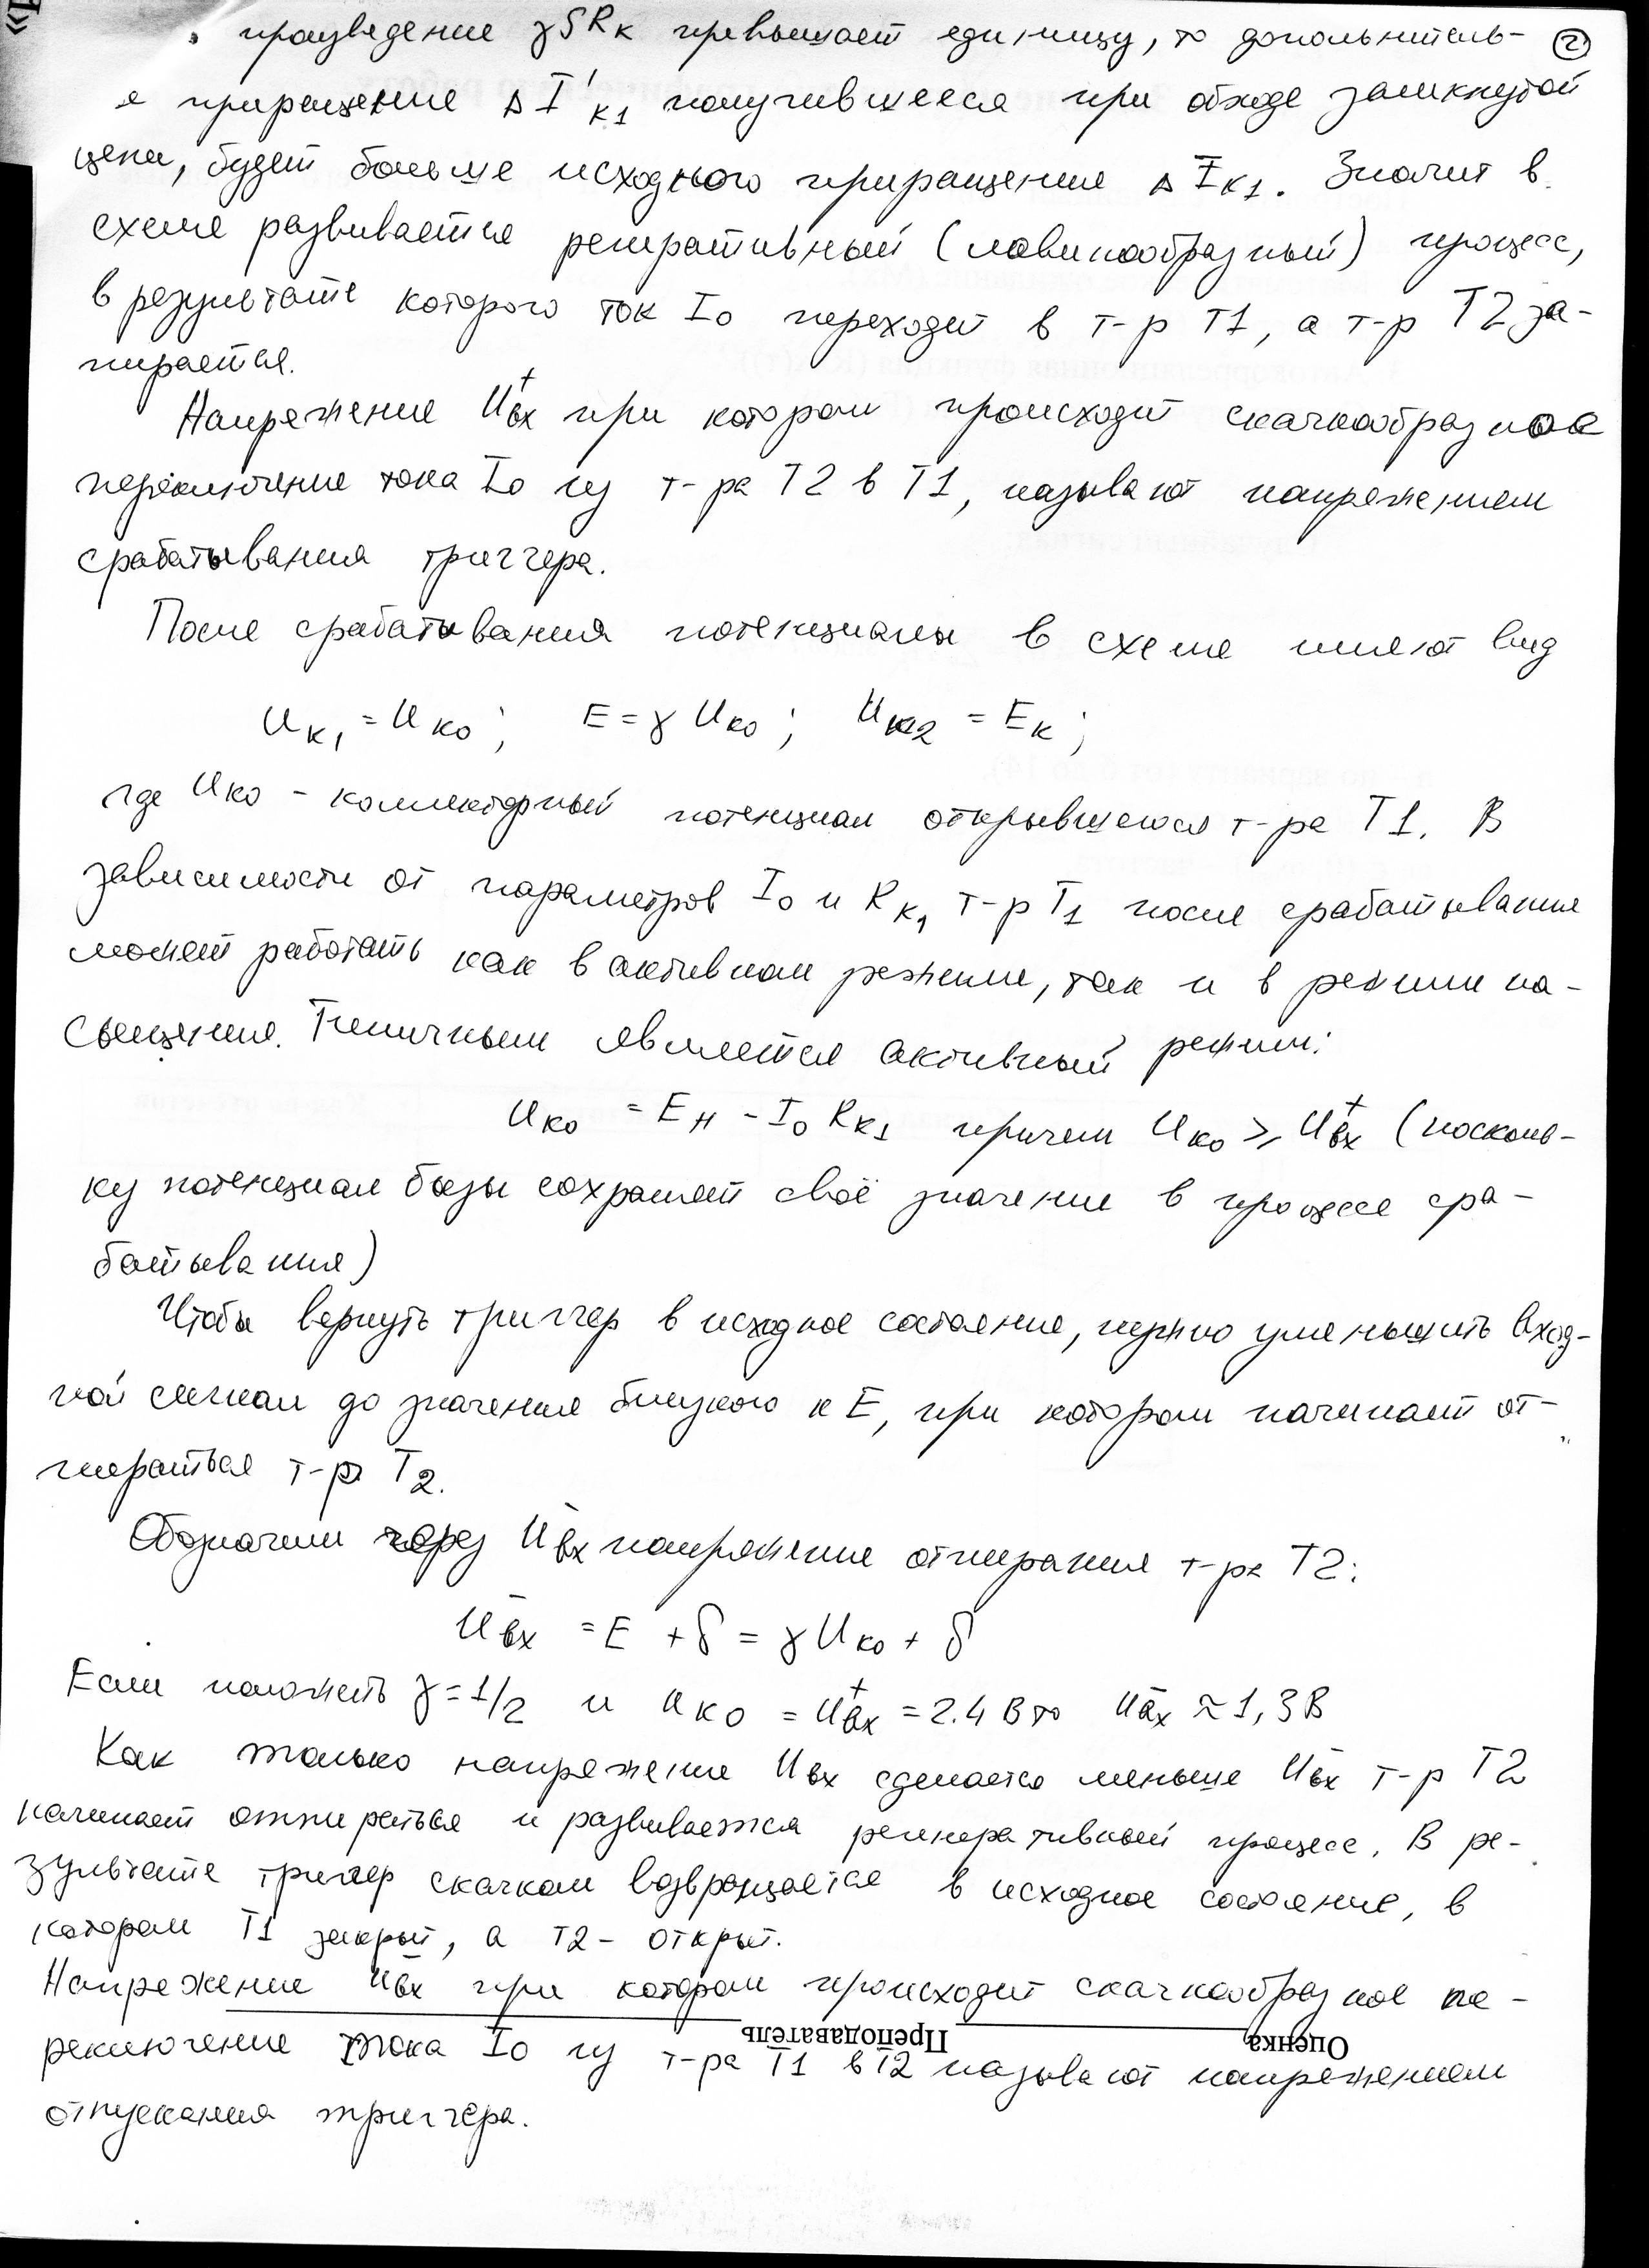 произведение γSRк превышает единицу, то дополнитель- ②
е приращение Δ I'к1 получившееся при обходе замкнутой
цепи, будет больше исходного приращения Δ Iк1. Значит в
схеме развивается регеративный (лавинообразный) процесс,
в результате которого ток I₀ переходит в т-р Т1, а т-р Т2 за-
пирается.
Напряжение U⁺вх при котором происходит скачкообразное
переключение тока I₀ из т-ра Т2 в Т1, называют напряжением
срабатывания триггера.
После срабатывания потенциалы в схеме имеют вид
Uк₁ = Uко; E = γ Uко; Uк2 = Eк;
где Uко - коллекторный потенциал открывшегося т-ра Т1. В
зависимости от параметров I₀ и Rк₁ т-р Т₁ после срабатывания
может работать как в активном режиме, так и в режиме на-
сыщения. Типичным является активный режим:
Uко = Eн - I₀ Rк1 причем Uко ⩾ U⁺вх (посколь-
ку потенциал базы сохраняет своё значение в процессе сра-
батывания)
Чтобы вернуть триггер в исходное состояние, нужно уменьшить вход-
ной сигнал до значения близкого к E, при котором начинает от-
пираться т-р Т₂.
Обозначим через U⁻вх напряжение отпирания т-ра Т2:
U⁻вх = E + δ = γ Uко + δ
Если положить γ = 1/2 и Uко = U⁺вх = 2.4 В то U⁻вх ≈ 1,3 В
Как только напряжение Uвх сделается меньше U⁻вх т-р Т2
начинает отпираться и развивается регенеративный процесс. В ре-
зультате тригер скачком возвращается в исходное состояние, в
котором Т1 закрыт, а Т2 - открыт.
Напряжение U⁻вх при котором происходит скачкообразное пе-
Преподаватель Оценка
реключение тока I₀ из т-ра Т1 в Т2 называют напряжением
отпускания триггера.